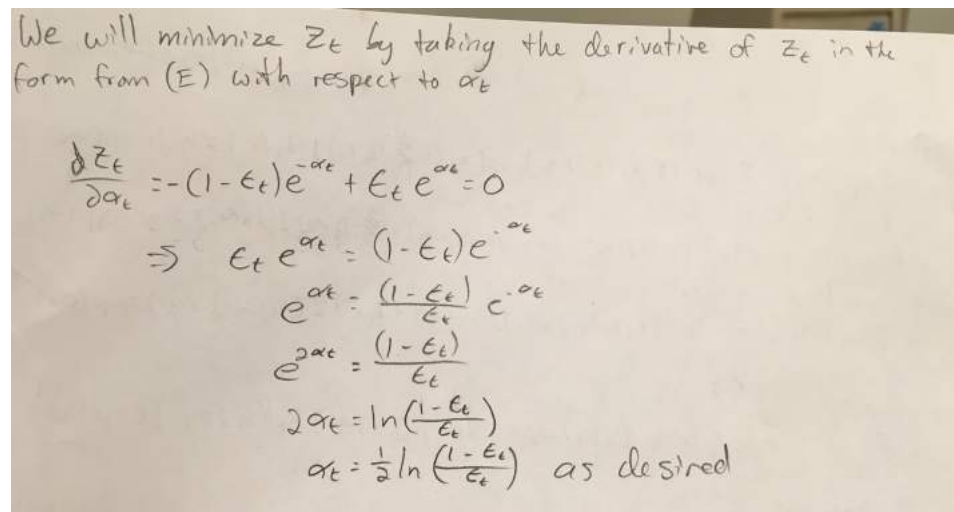 We will minimize Z_t by taking the derivative of Z_t in the
form from (E) with respect to α_t
∂Z_t/∂α_t = -(1-ϵ_t)e^{-α_t} + ϵ_t e^{α_t} = 0
⇒ ϵ_t e^{α_t} = (1-ϵ_t)e^{-α_t}
e^{α_t} = (1-ϵ_t)/ϵ_t e^{-α_t}
e^{2α_t} = (1-ϵ_t)/ϵ_t
2α_t = ln((1-ϵ_t)/ϵ_t)
α_t = 1/2 ln((1-ϵ_t)/ϵ_t) as desired